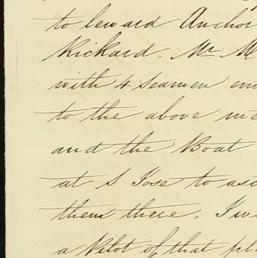 to leward Anchor
Rickard. Mr M
with 4 Seamen em
to the above me
and the Boat
at S Jose to asc
them there. I w
a Pilot of that pl